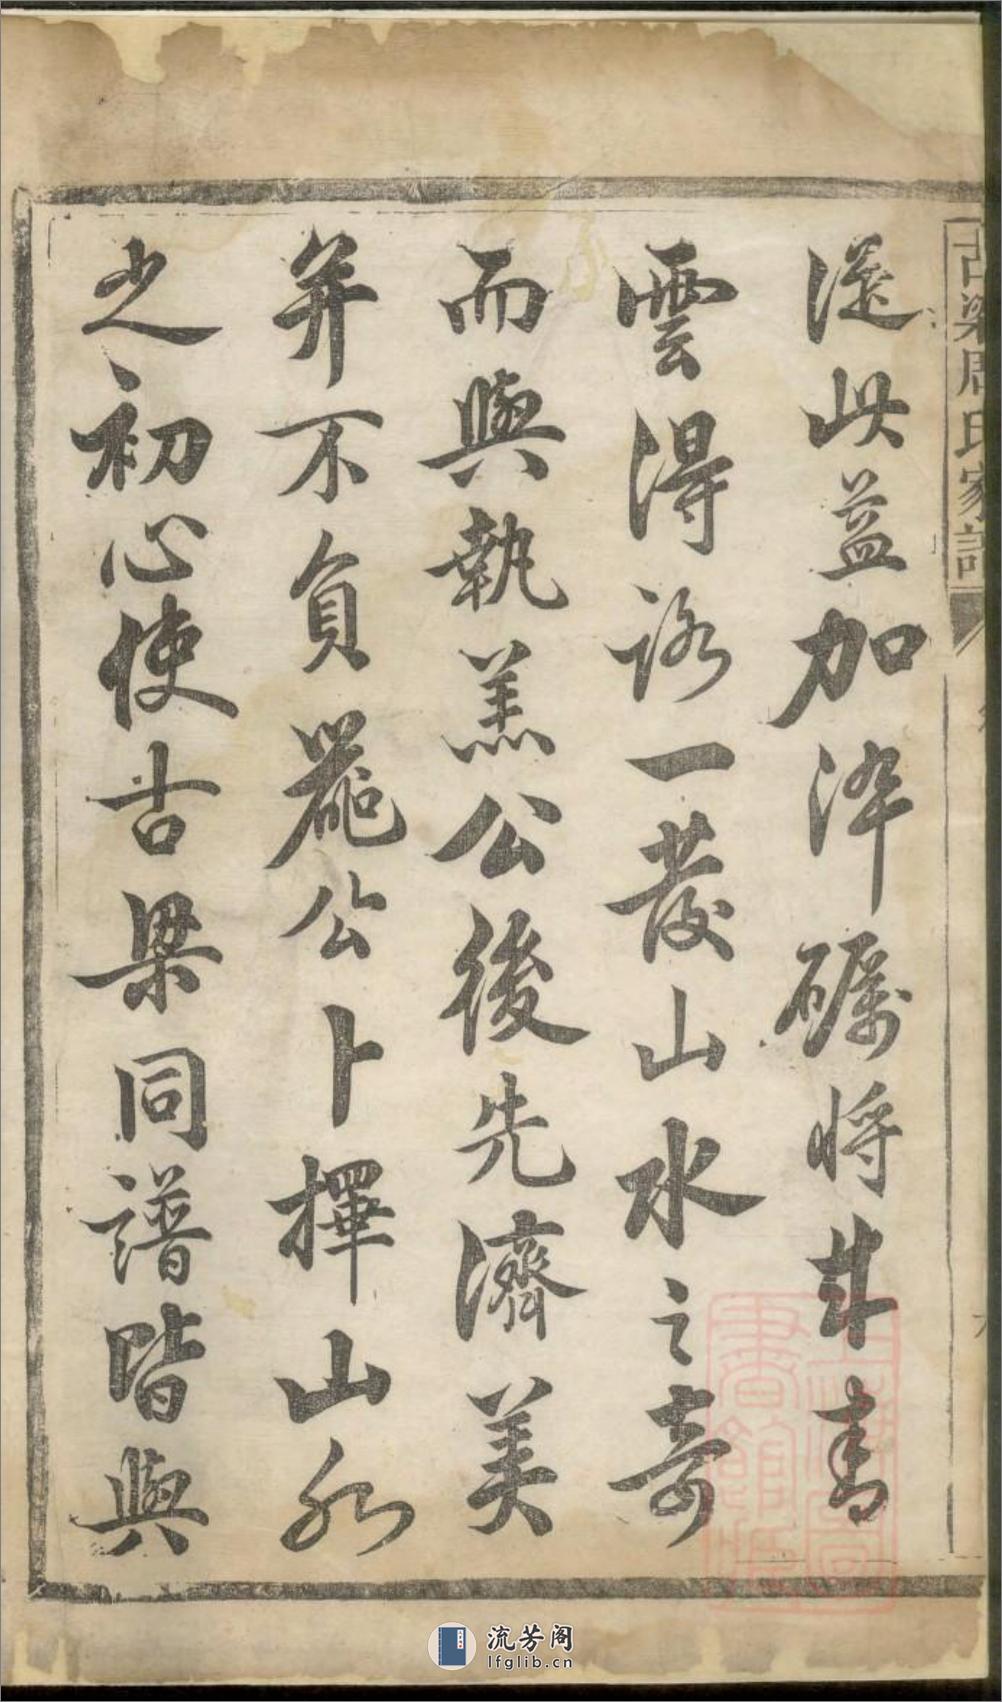 古梁周氏家譜
從此益加淬礪將其青
雲得路一發山水之奇
而與執羔公後先濟美
并不負羆公卜擇山水
之初心使古梁同譜皆與
上海圖
書館藏
流芳阁
lfglib.cn